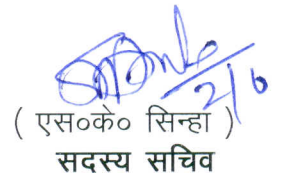 2/6
( एस०के० सिन्हा )
सदस्य सचिव